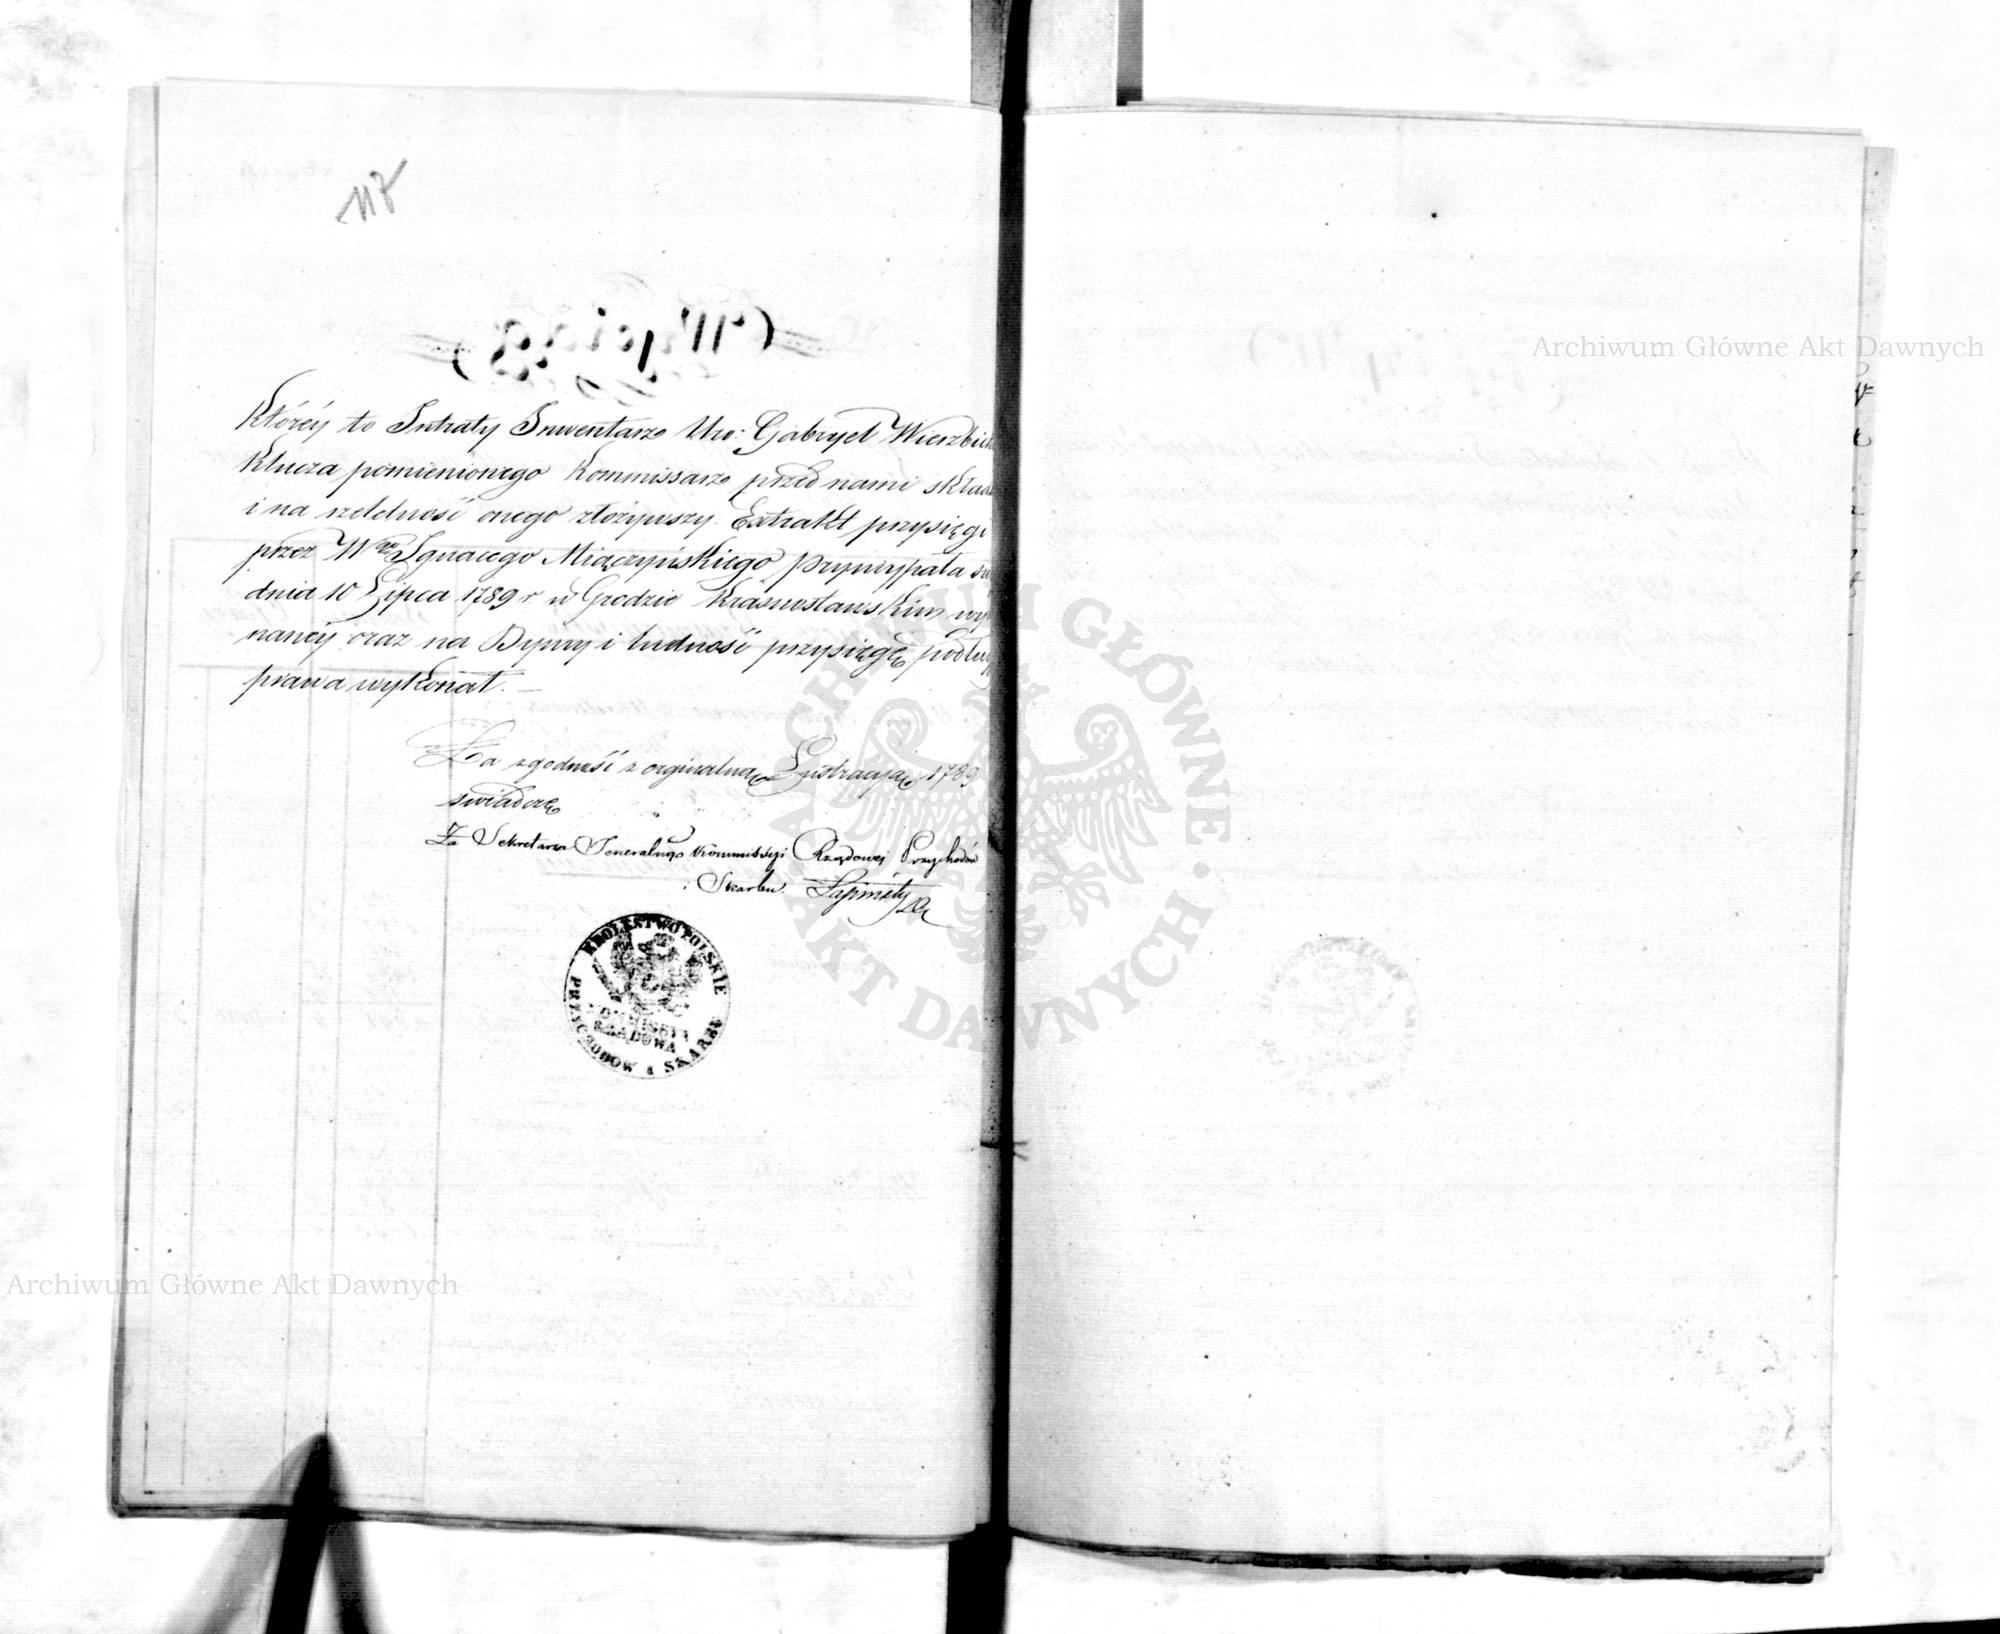 117
Wyciąg
Któréy to Intraty Inwentarz Uro: Gabryel Wierzbick
Klucza pomienionego Kommissarz przed nami składa
i na rzetelność onego złożywszy Extrakt przysięgi
przez W Ignacego Miączyńskiego Pryncypała
dnia 10 Lipca 1789 r. w Grodzie Krasnostawskim wyko
nanéy oraz na Dymy i ludność przysięgę podług
prawa wykonał. —
Za zgodność z orginalną Lustracyą 1789
świadczę
Za Sekretarza Jeneralnego Kommissyi Rządowej Przychodów
i Skarbu.
KRÓLESTWO POLSKIE
KOMMISSYA
RZĄDOWA
PRZYCHODÓW i SKARBU
Archiwum Główne Akt Dawnych
Archiwum Główne Akt Dawnych
ARCHIWUM GŁÓWNE AKT DAWNYCH